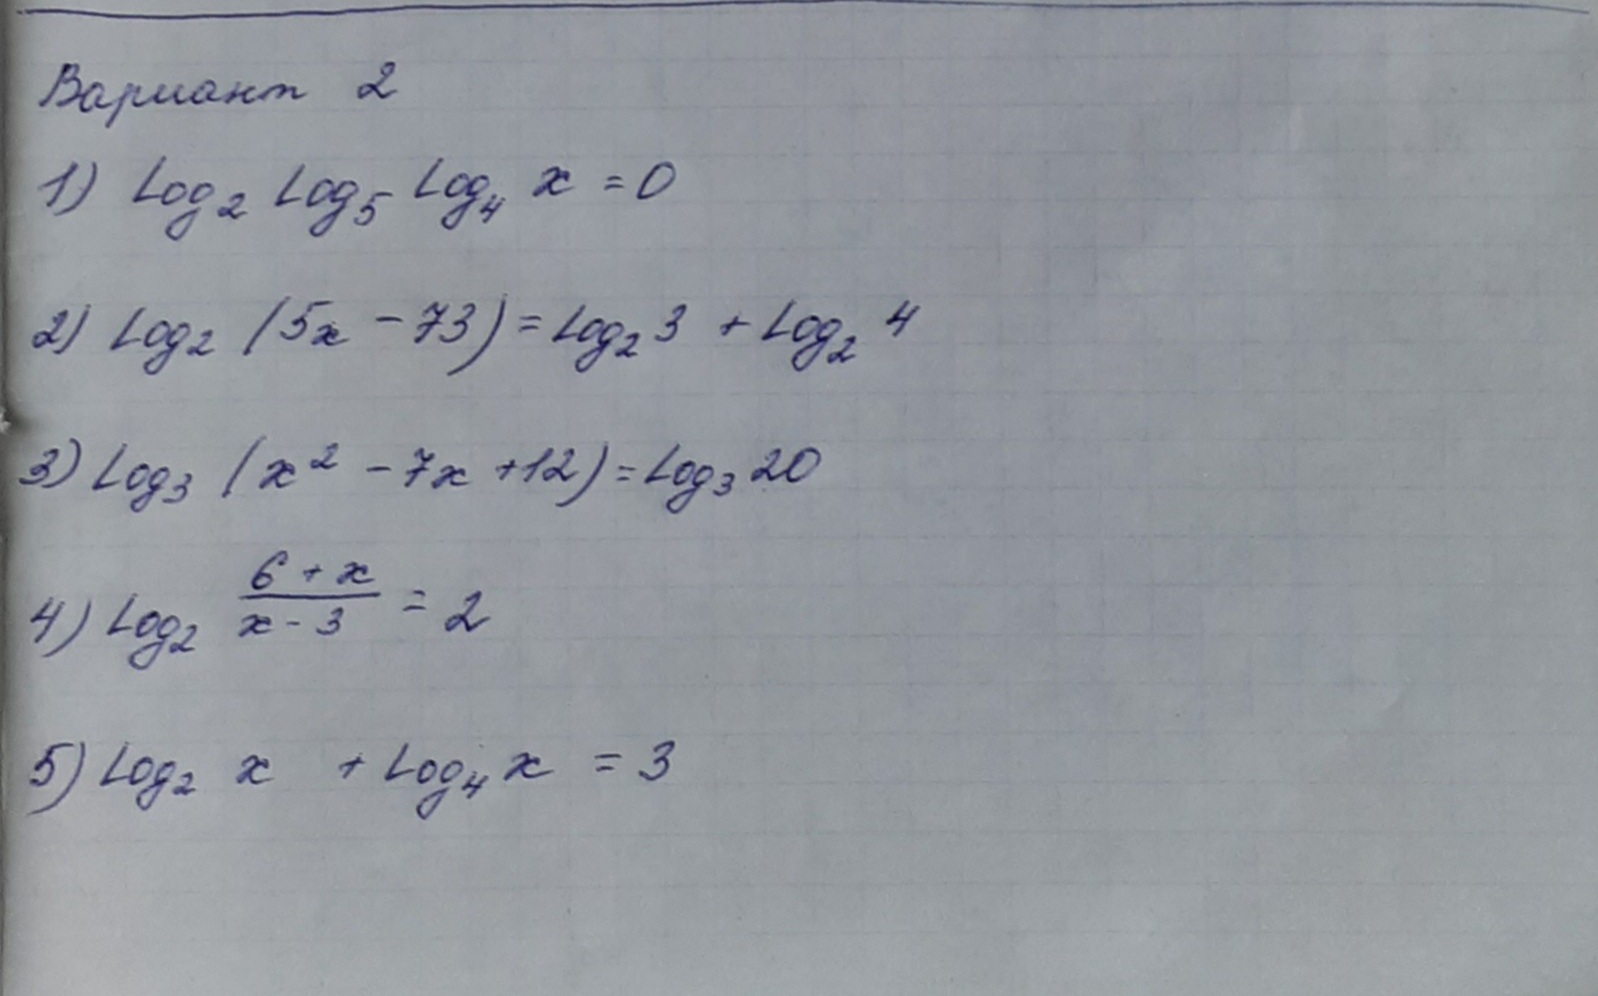 Вариант 2
1) Log₂ Log₅ Log₄ x = 0
2) Log₂ (5x - 73) = Log₂ 3 + Log₂ 4
3) Log₃ (x² - 7x + 12) = Log₃ 20
4) Log₂ (6 + x)/(x - 3) = 2
5) Log₂ x + Log₄ x = 3